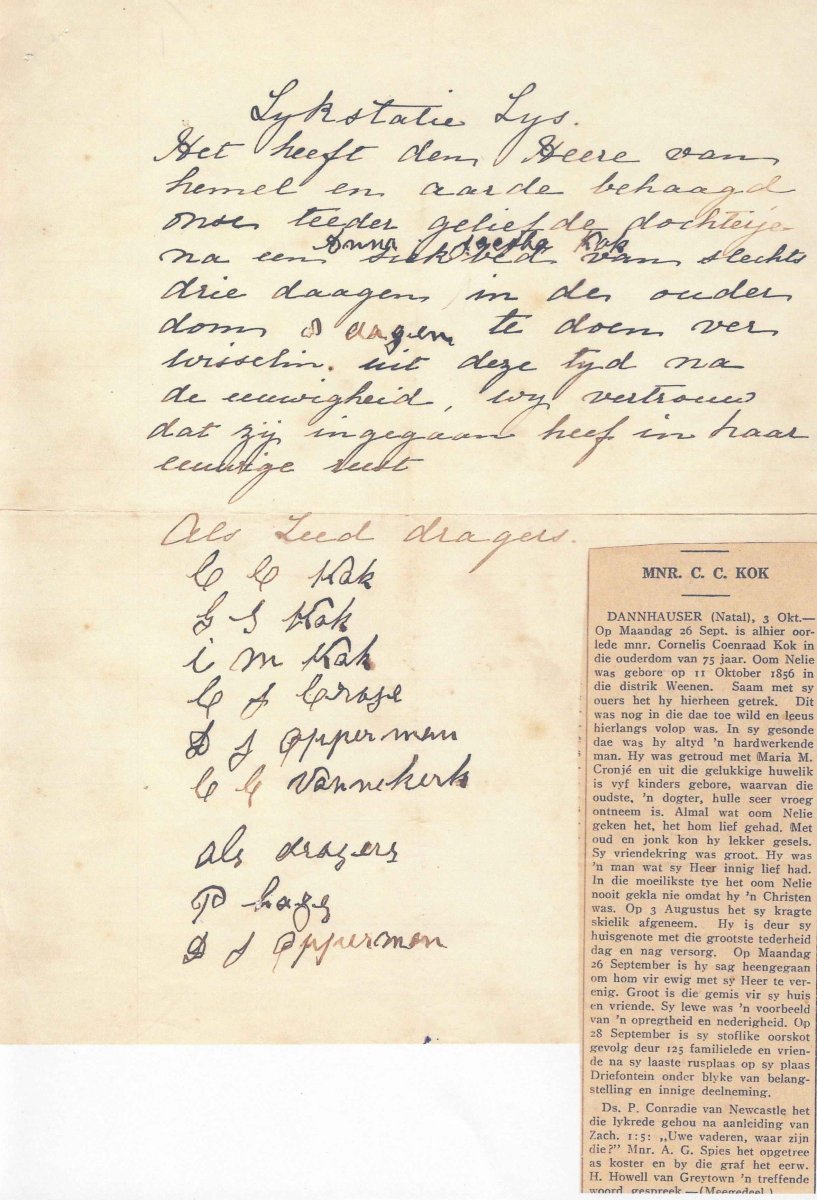 Lykstatie Lys.
Het heeft den Heere van
hemel en aarde behaagd
onse teeder geliefde dochterje
Anna Kok
na een van slechts
drie daagen in de ouder
dom 8 dagen te doen ver
wisselin. uit deze tyd na
de eeuwigheid, wy vertrouw
dat zij ingegaan heef in haar
eeuwige rust
Als Leed dragers.
C C Kok
G S Kok
i m Kok
C J
D J Opperman
C C Vannekerk
als dragers
P
D J Opperman
MNR. C. C. KOK
DANNHAUSER (Natal), 3 Okt.—
Op Maandag 26 Sept. is alhier oor-
lede mnr. Cornelis Coenraad Kok in
die ouderdom van 75 jaar. Oom Nelie
was gebore op 11 Oktober 1856 in
die distrik Weenen. Saam met sy
ouers het hy hierheen getrek. Dit
was nog in die dae toe wild en leeus
hierlangs volop was. In sy gesonde
dae was hy altyd 'n hardwerkende
man. Hy was getroud met Maria M.
Cronjé en uit die gelukkige huwelik
is vyf kinders gebore, waarvan die
oudste, 'n dogter, hulle seer vroeg
ontneem is. Almal wat oom Nelie
geken het, het hom lief gehad. Met
oud en jonk kon hy lekker gesels.
Sy vriendekring was groot. Hy was
'n man wat sy Heer innig lief had.
In die moeilikste tye het oom Nelie
nooit gekla nie omdat hy 'n Christen
was. Op 3 Augustus het sy kragte
skielik afgeneem. Hy is deur sy
huisgenote met die grootste tederheid
dag en nag versorg. Op Maandag
26 September is hy sag heengegaan
om hom vir ewig met sy Heer te ver-
enig. Groot is die gemis vir sy huis
en vriende. Sy lewe was 'n voorbeeld
van 'n opregtheid en nederigheid. Op
28 September is sy stoflike oorskot
gevolg deur 125 familielede en vrien-
de na sy laaste rusplaas op sy plaas
Driefontein onder blyke van belang-
stelling en innige deelneming.
Ds. P. Conradie van Newcastle het
die lykrede gehou na aanleiding van
Zach. 1:5: „Uwe vaderen, waar zijn
die?" Mnr. A. G. Spies het opgetree
as koster en by die graf het eerw.
H. Howell van Greytown 'n treffende
woord gespreek.—(Meegedeel.)